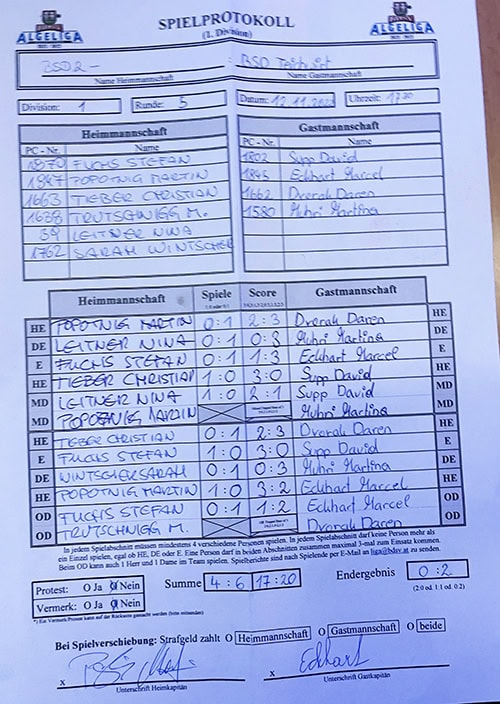 ALGELIGA
SPIELPROTOKOLL
(1. Division)
ALGELIGA
BSD2 - : BSD
Name Heimmannschaft Name Gastmannschaft
Division: 1 Runde: 5 Datum: 12.11. Uhrzeit:
Heimmannschaft Gastmannschaft
PC - Nr. Name PC - Nr. Name
1870 FUCHS STEFAN 1802 Supp David
1847 POPOTNIG MARTIN Eckhart Marcel
1663 TIEBER CHRISTIAN 1662 Dvorak Daren
1638 TRUTSCHNIGG M. 1580 Muhri Martina
39 LEITNER NINA
1762 SARAH WINTSCHER
Heimmannschaft Spiele Score Gastmannschaft
HE POPOTNIG MARTIN 0:1 2:3 Dvorak Daren HE
DE LEITNER NINA 0:1 0:3 Muhri Martina DE
E FUCHS STEFAN 0:1 1:3 Eckhart Marcel E
HE TIEBER CHRISTIAN 1:0 3:0 Supp David HE
MD LEITNER NINA 1:0 2:1 Supp David MD
MD POPOTNIG MARTIN Muhri Martina MD
HE TIEBER CHRISTIAN 0:1 2:3 Dvorak Daren HE
E FUCHS STEFAN 1:0 3:0 Supp David E
DE WINTSCHER SARAH 0:1 0:3 Muhri Martina DE
HE POPOTNIG MARTIN 1:0 3:2 Eckhart Marcel HE
OD FUCHS STEFAN 0:1 1:2 Eckhart Marcel OD
OD TRUTSCHNIGG M. Dvorak Daren OD
In jedem Spielabschnitt müssen mindestens 4 verschiedene Personen spielen. In jedem Spielabschnitt darf keine Person mehr als
ein Einzel spielen, egal ob HE, DE oder E. Eine Person darf in beiden Abschnitten zusammen maximal 3-mal zum Einsatz kommen.
Beim OD kann auch 1 Herr und 1 Dame im Team spielen. Spielberichte sind nach Spielende per E-Mail an liga@bdsv.at zu senden.
Protest: O Ja O Nein Summe 4:6 17:20 Endergebnis 0:2
Vermerk: O Ja O Nein (2:0 od. 1:1 od. 0:2)
*) Ein Vermerk/Protest kann auf der Rückseite gemacht werden (bitte ankreuzen)
Bei Spielverschiebung: Strafgeld zahlt O Heimmannschaft O Gastmannschaft O beide
x x Eckhart
Unterschrift Heimkapitän Unterschrift Gastkapitän